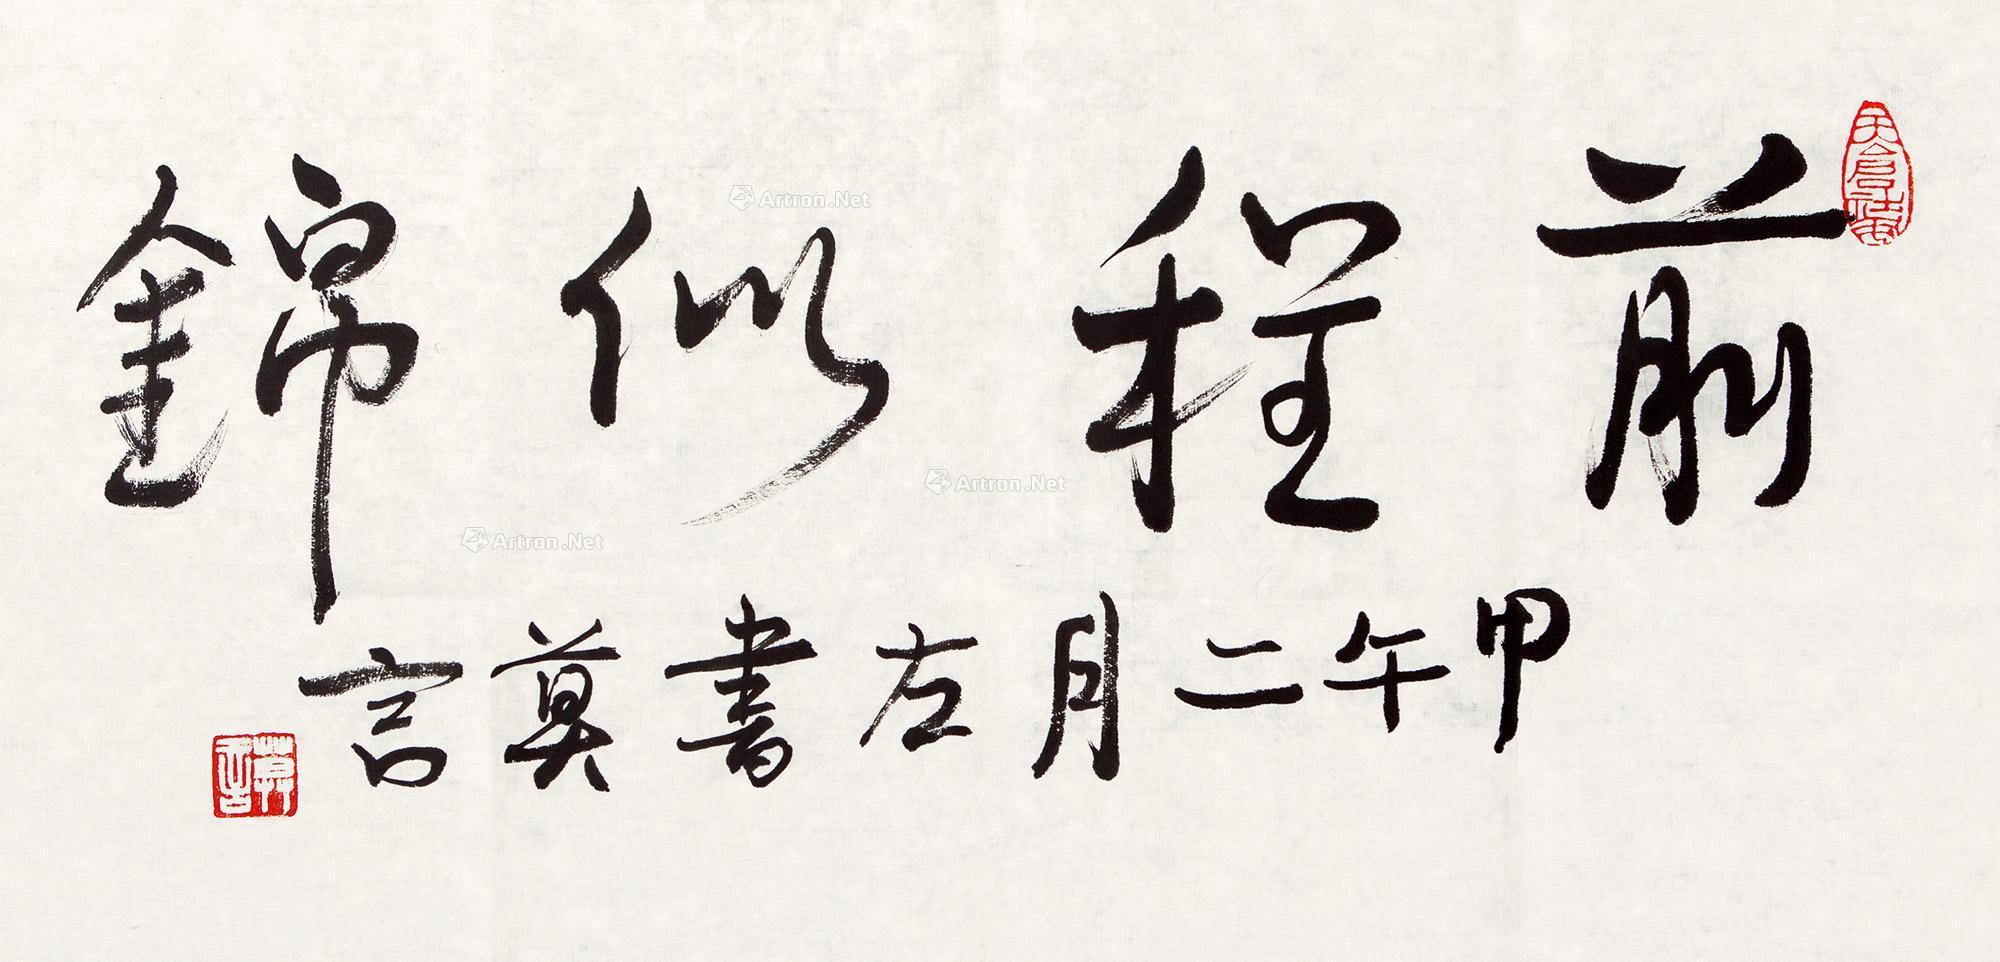 前程似錦
甲午二月左書莫言
莫言
Artron.Net
Artron.Net
Artron.Net